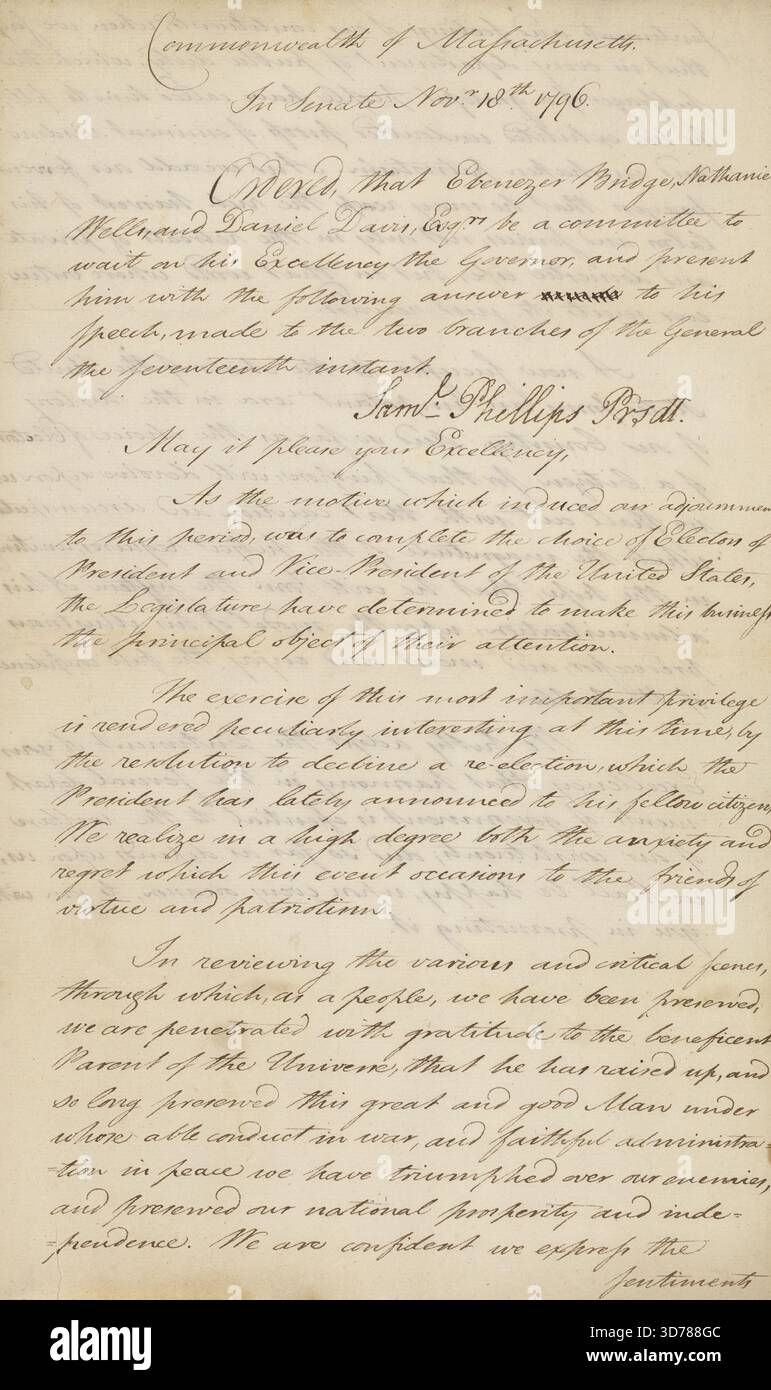 Commonwealth of Massachusetts.
In Senate Novr 18th 1796.
Ordered, that Ebenezer Bridge, Nathanie
Wells, and Daniel Davis, Esqrs be a committee to
wait on his Excellency the Governor, and present
him with the following answer to his
speech, made to the two branches of the General
the seventeenth instant.
Saml Phillips Prsdt.
May it please your Excellency,
As the motive which induced our adjournmen
to this period, was to complete the choice of Electors of
President and Vice-President of the United States,
the Legislature have determined to make this business
the principal object of their attention.
The exercise of this most important privilege
is rendered peculiarly interesting at this time, by
the resolution to decline a re-election, which the
President has lately announced to his fellow citizens,
We realize in a high degree both the anxiety and
regret which this event occasions to the friends of
virtue and patriotism.
In reviewing the various and critical scenes,
through which, as a people, we have been preserved,
we are penetrated with gratitude to the beneficent
Parent of the Universe, that he has raised up, and
so long preserved this great and good Man under
whose able conduct in war, and faithful administra=
=tion in peace we have triumphed over our enemies,
and preserved our national prosperity and inde=
=pendence. We are confident we express the
sentiments
alamy
Image ID: 3D788GC
www.alamy.com